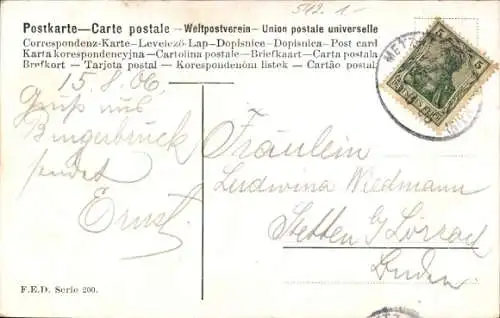 512. 1.-
Postkarte—Carte postale – Weltpostverein – Union postale universelle
Correspondenz-Karte – Levelező Lap – Dopisnice – Dopisnica – Post card
Karta korespondencyjna – Cartolina postale – Briefkaart – Carta postala
Brefkort – Tarjeta postal – Korespondenční lístek – Cartão postal
15.8.06.
Gruß aus
Bingerbrück
sendet
Ernst.
Fräulein
Ludwina Wiedmann
Stetten b/ Lörrach
Baden
5 5
F.E.D. Serie 200.